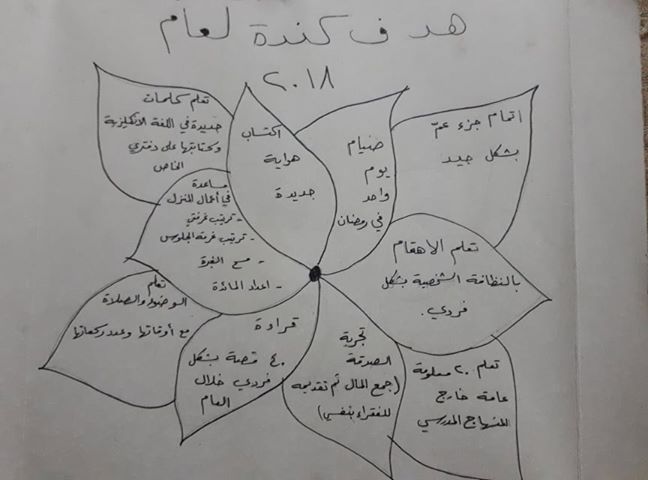 هدف كندة لعام
٢٠١٨
اتمام جزء عمّ
بشكل جيد
صيام
يوم
واحد
في رمضان
اكتساب
هواية
جديدة
تعلم كلمات
جديدة في اللغة الانكليزية
وكتابتها على دفتري
الخاص
مساعدة
في أعمال المنزل
- ترتيب غرفتي
- ترتيب غرفة الجلوس
- مسح الغبرة
- اعداد المائدة
تعلم
الوضوء والصلاة
مع أوقاتها وعدد ركعاتها
قراءة
٤٠ قصة بشكل
فردي خلال
العام
تجربة
الصدقة
(جمع المال ثم تقديمه
للفقراء بنفسي)
تعلم ٢٠ معلومة
عامة خارج
المنهاج المدرسي
تعلم الاهتمام
بالنظافة الشخصية بشكل
فردي.